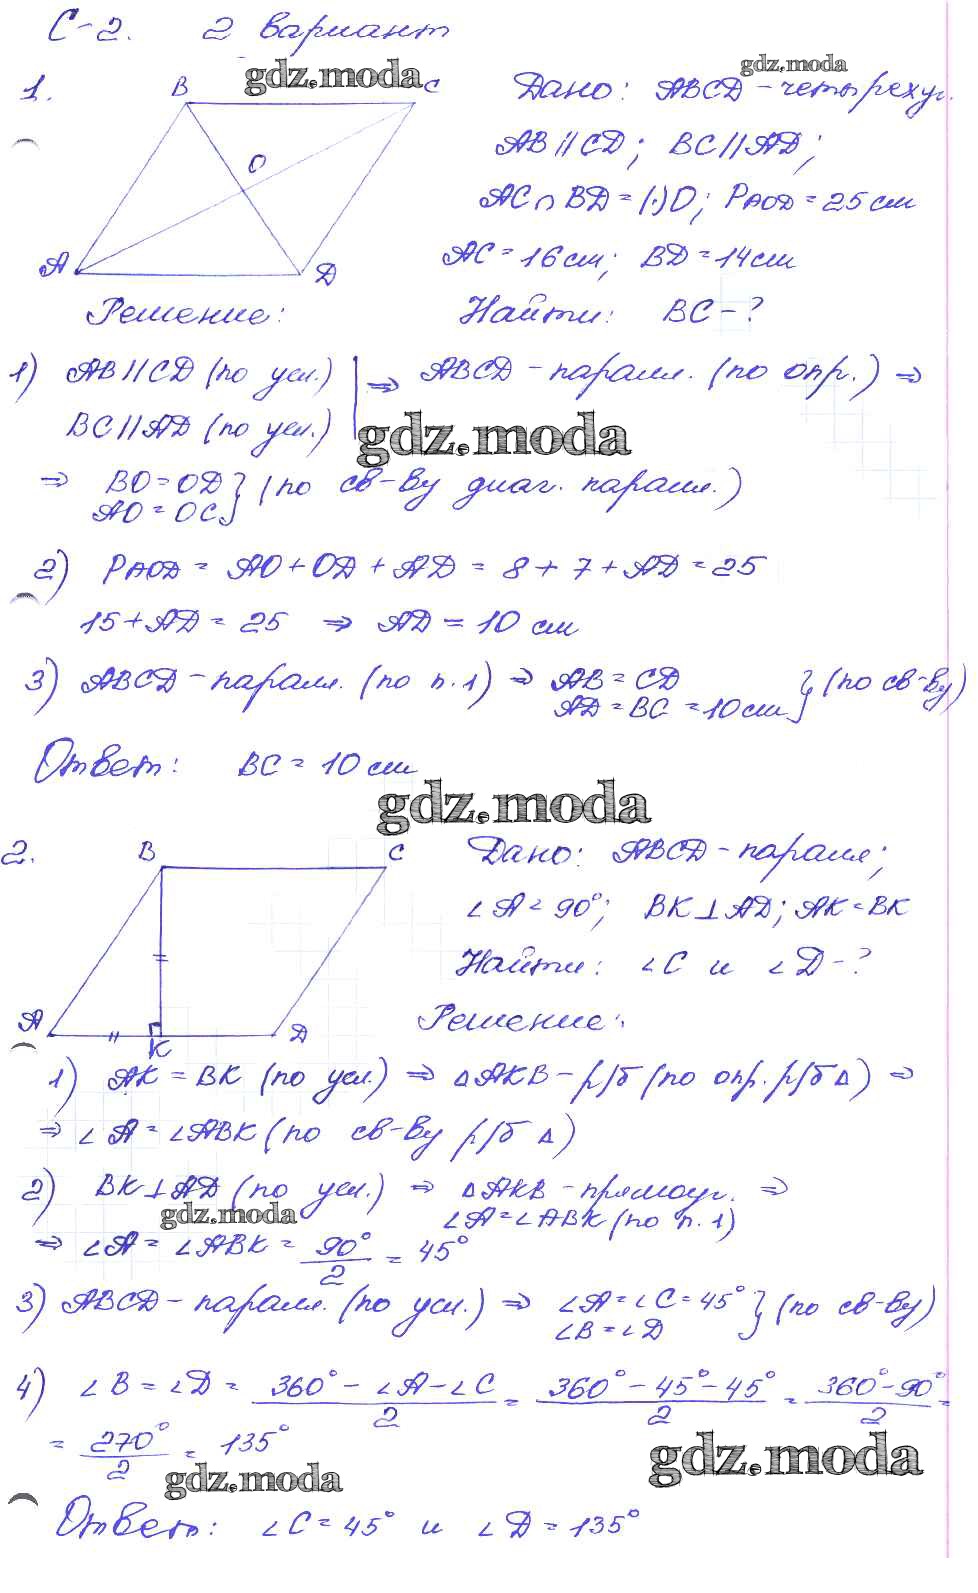 С-2. 2 вариант
1. B C
O
A D
gdz.moda
gdz.moda
Дано: ABCD - четырехуг.
AB || CD; BC || AD;
AC ∩ BD = (·) O; PAOD = 25 см
AC = 16 см; BD = 14 см
Решение: Найти: BC - ?
1) AB || CD (по усл.) ⇒ ABCD - паралл. (по опр.) ⇒
BC || AD (по усл.)
gdz.moda
⇒ BO = OD } (по св-ву диаг. паралл.)
AO = OC
2) PAOD = AO + OD + AD = 8 + 7 + AD = 25
15 + AD = 25 ⇒ AD = 10 см
3) ABCD - паралл. (по п.1) ⇒ AB = CD } (по св-ву)
AD = BC = 10 см
Ответ: BC = 10 см
gdz.moda
2. B C
A K D
Дано: ABCD - паралл;
∠A = 90°; BK ⊥ AD; AK = BK
Найти: ∠C и ∠D - ?
Решение:
1) AK = BK (по усл.) ⇒ △AKB - р/б (по опр. р/б △) ⇒
⇒ ∠A = ∠ABK (по св-ву р/б △)
2) BK ⊥ AD (по усл.) ⇒ △AKB - прямоуг. ⇒
∠A = ∠ABK (по п.1)
gdz.moda
⇒ ∠A = ∠ABK = 90°/2 = 45°
3) ABCD - паралл. (по усл.) ⇒ ∠A = ∠C = 45° } (по св-ву)
∠B = ∠D
4) ∠B = ∠D = (360° - ∠A - ∠C)/2 = (360° - 45° - 45°)/2 = (360° - 90°)/2 =
= 270°/2 = 135°
gdz.moda
gdz.moda
Ответ: ∠C = 45° и ∠D = 135°